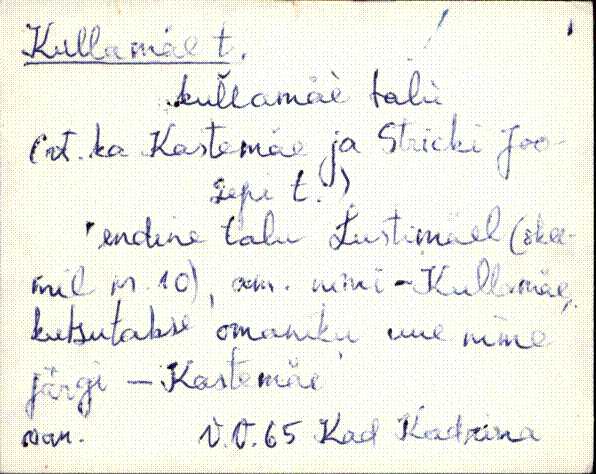 Kullamäe t.
kullamäè talù
(vt. ka Kastemäe ja Stricki Joo-
sepi t.)
endine talu Lustimäel (skee-
mil nr. 10), van. nimi - Kullamäe,
kutsutakse omaniku uue nime
järgi - Kastemäe
van. V.V.65 Kad Kadrina